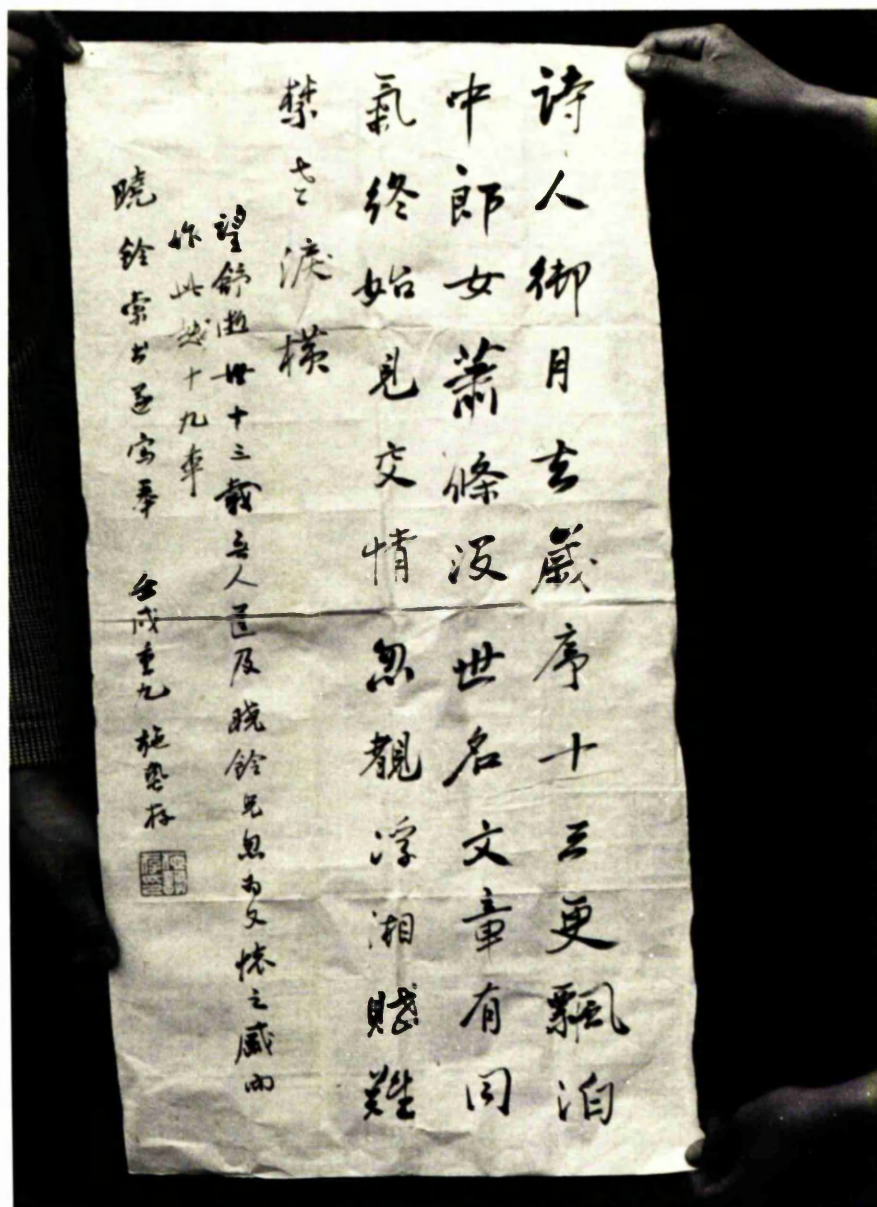 詩人御月去歲序十三更飄泊
中郎女蕭條沒世名文章有同
氣終始見交情忽覩浮湘賦難
禁老淚橫
望舒逝世十三載無人道及曉鈴兄忽為文懷之感而
作此越十九年
曉鈴索書並寫奉 壬戌重九 施蟄存